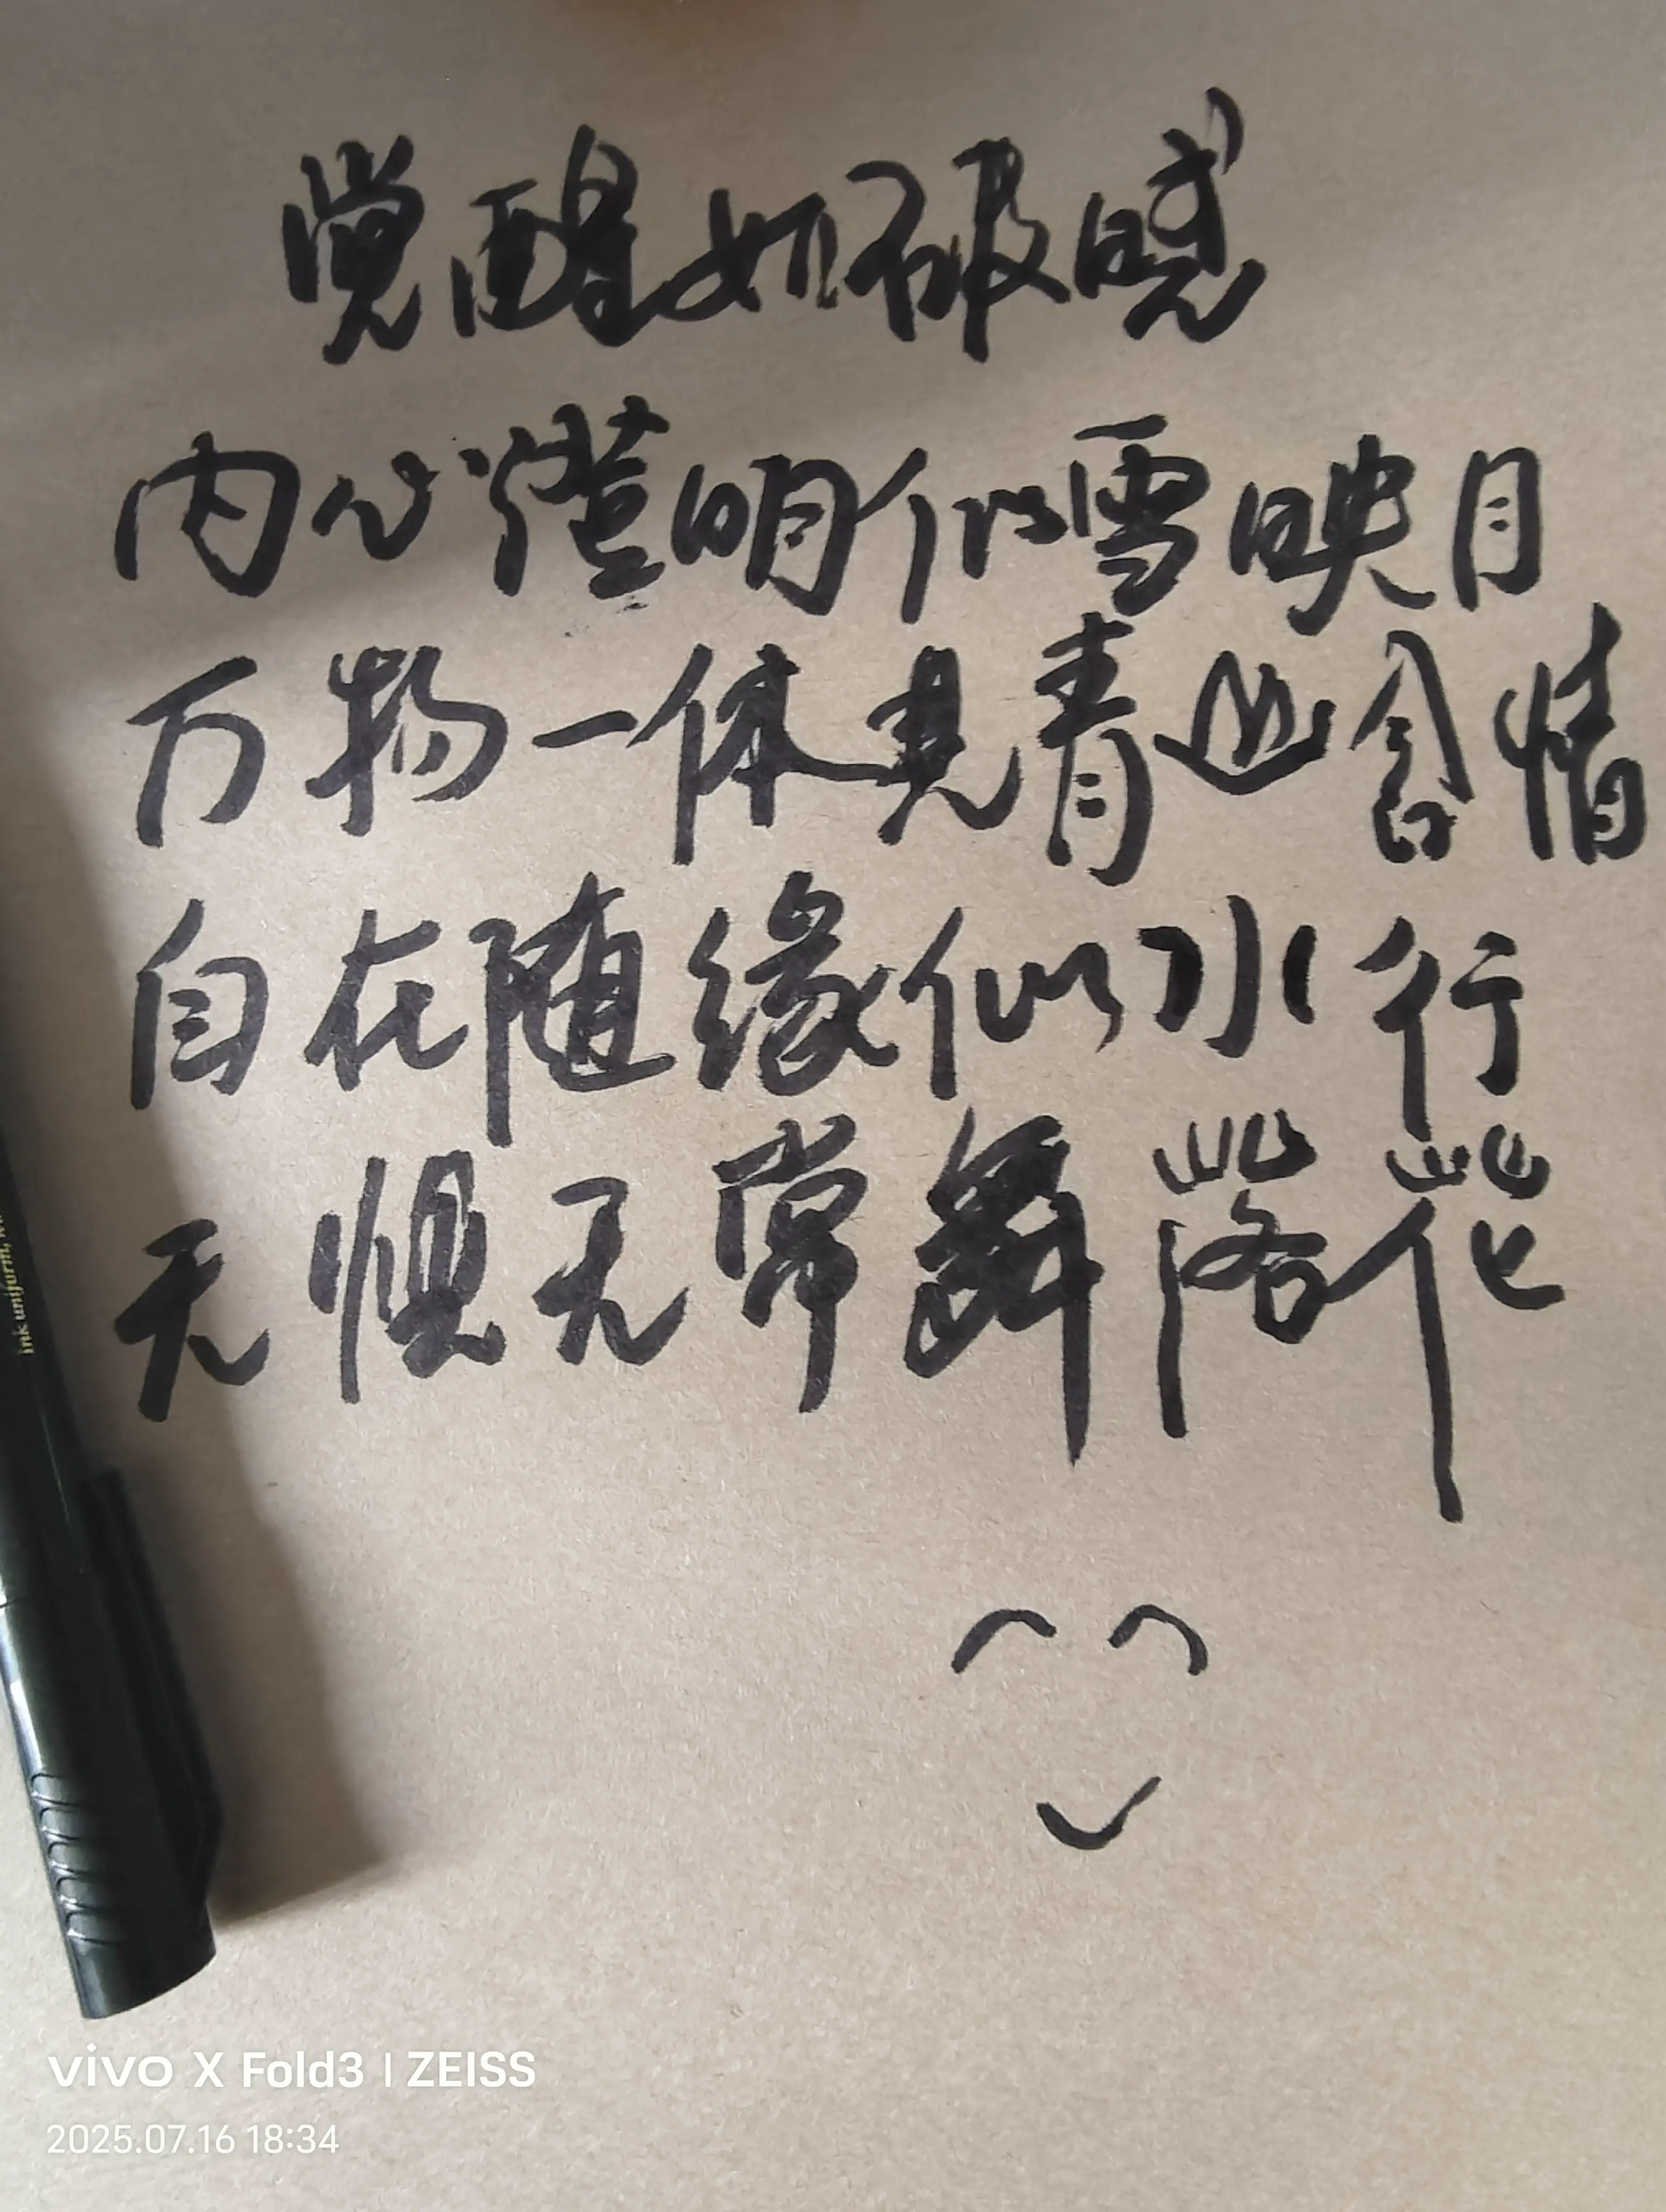 觉醒如破晓
内心澄明似雪映月
万物一体见青山含情
自在随缘似水行
无惧无常舞落花
ink uniform, w
vivo X Fold3 | ZEISS
2025.07.16 18:34